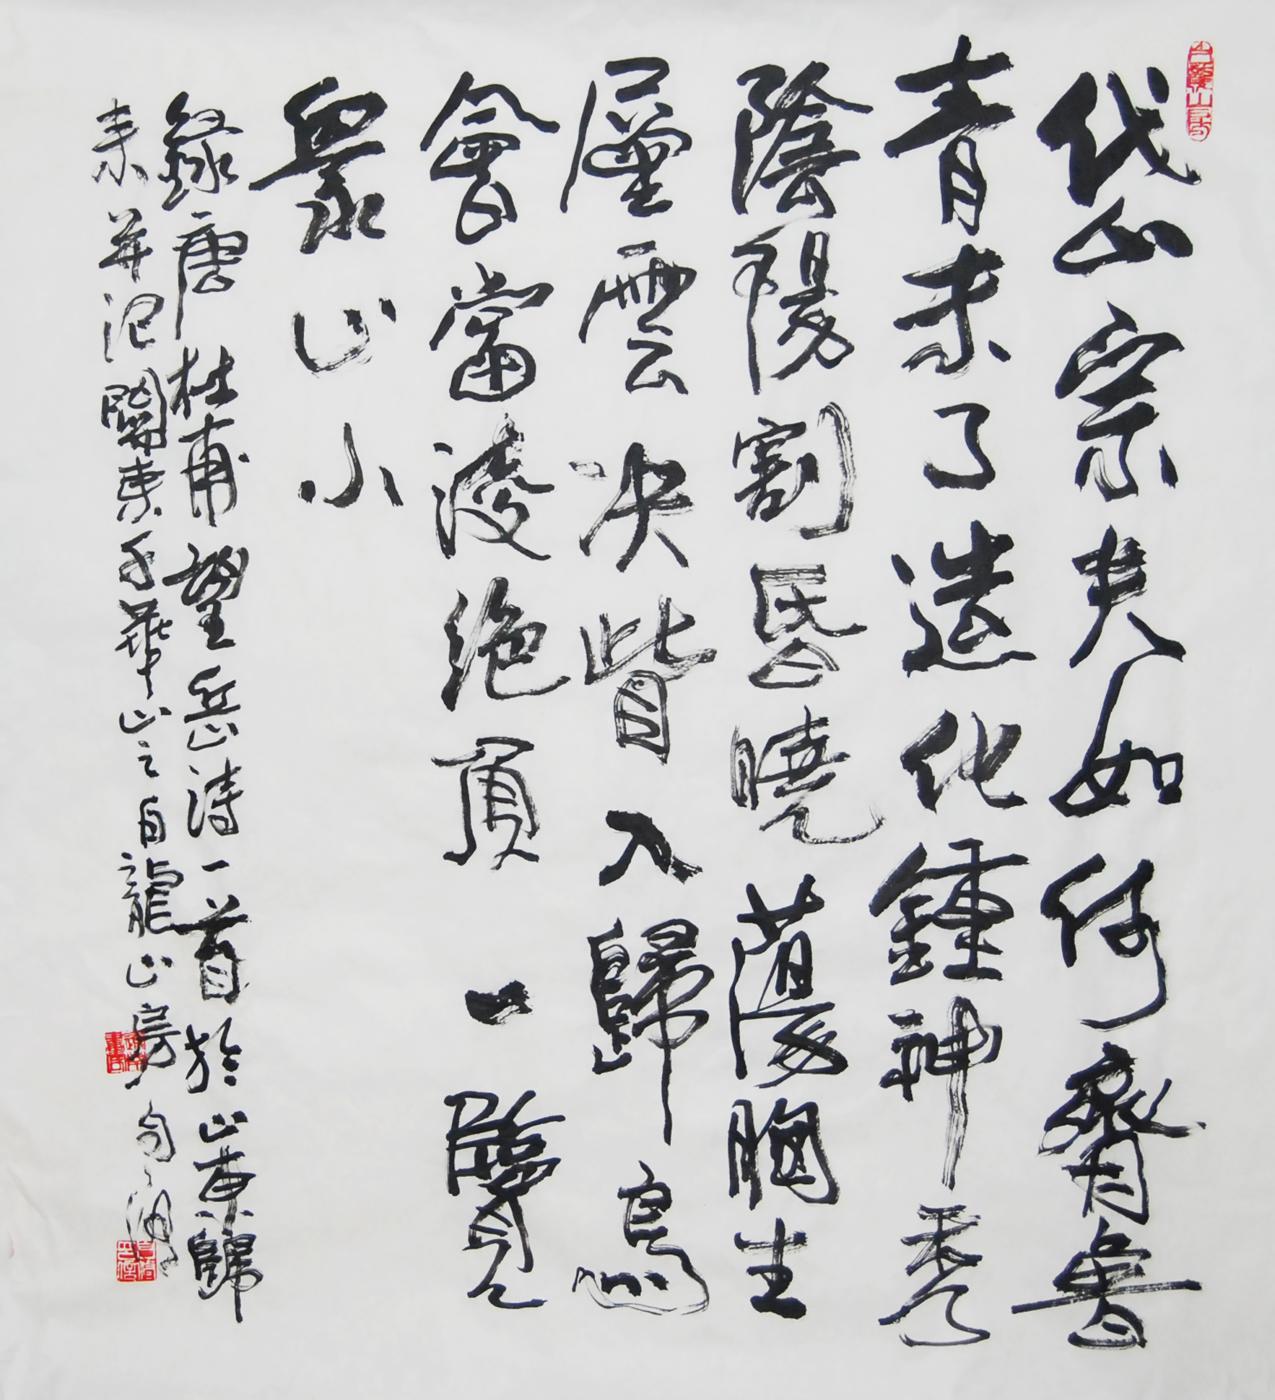 岱宗夫如何齊魯
青未了造化鍾神秀
陰陽割昏曉蕩胸生
層雲決眥入歸鳥
會當凌絕頂一覽
衆山小
錄唐杜甫望岳詩一首於山東歸
来并记關東千華山之白龍山房